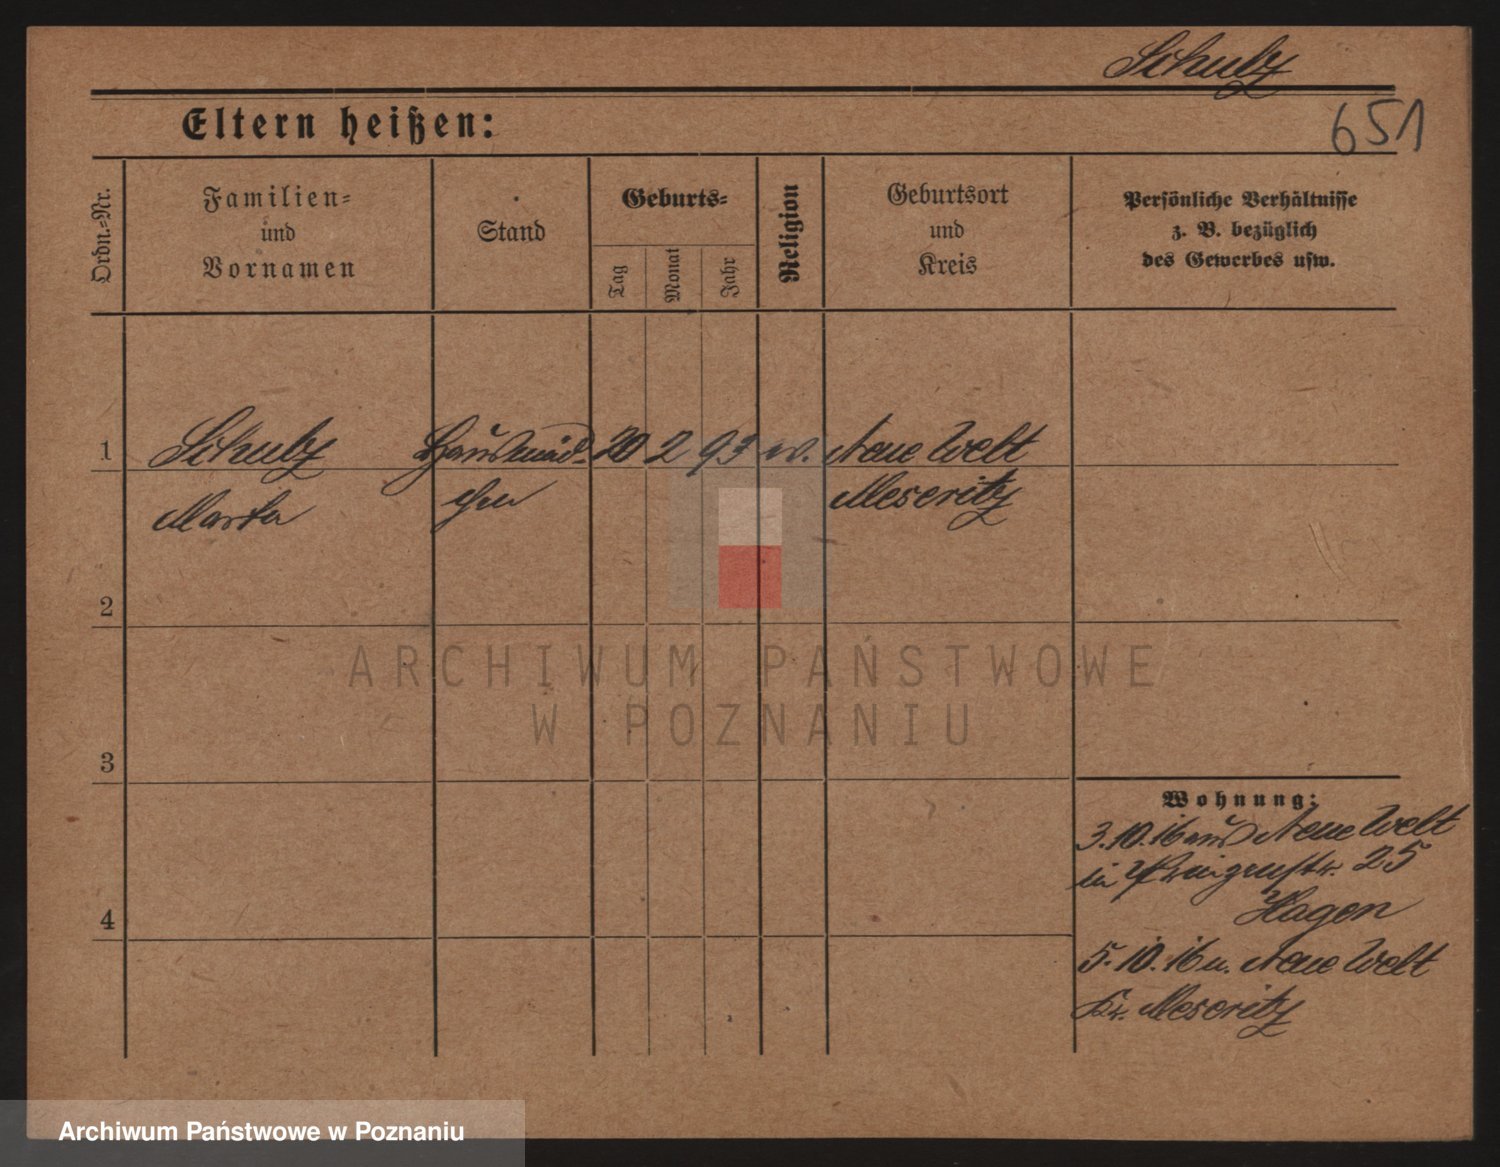 Schulz
651
Eltern heißen:
Ordn.=Nr.
Familien=
und
Vornamen
Stand
Geburts=
Tag
Monat
Jahr
Religion
Geburtsort
und
Kreis
Persönliche Verhältnisse
z. B. bezüglich
des Gewerbes usw.
1
Schulz Hausmäd- 20 2 93 ev. Neue Welt
Marta chen Meseritz
2
ARCHIWUM PAŃSTWOWE
W POZNANIU
3
Wohnung:
3.10.16 aus Neue Welt
in Prinzenstr. 25
Hagen
4
5.10.16 n. Neue Welt
Kr. Meseritz
Archiwum Państwowe w Poznaniu